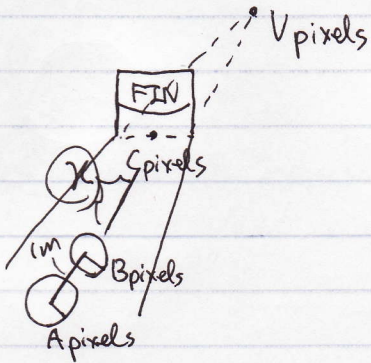 V pixels
FIN
x
C pixels
1m
B pixels
A pixels